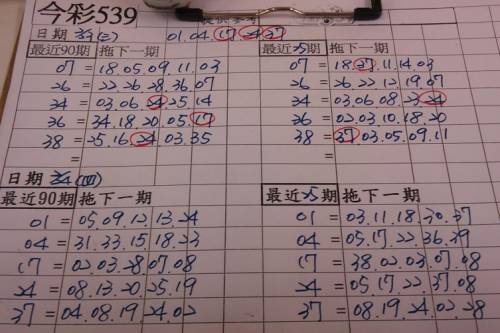 今彩539 提供參考
日期 01.04.17.24.37
最近90期 拖下一期 最近25期 拖下一期
07 = 18.05.09.11.03 07 = 18.37.11.14.03
26 = 22.26.28.36.07 26 = 26.22.12.19.07
34 = 03.06.24.25.14 34 = 03.06.08.23.24
36 = 34.18.20.05.17 36 = 02.03.10.18.20
38 = 25.16.24.03.35 38 = 37.03.05.09.11
= =
日期 (四)
最近90期 拖下一期 最近25期 拖下一期
01 = 05.09.12.13.24 01 = 03.11.18.30.37
04 = 31.33.15.18.23 04 = 05.17.22.36.39
17 = 02.03.28.07.08 17 = 38.02.03.07.08
24 = 08.13.20.25.19 24 = 05.17.22.37.08
37 = 04.08.19.24.02 37 = 08.19.24.02.28